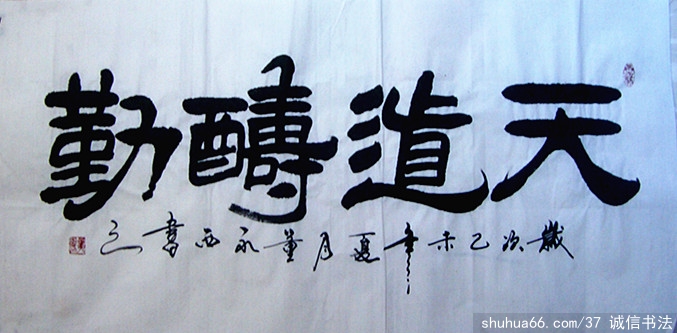 天道醻勤
歲次己未年夏月董永西書之
shuhua66.com/37 诚信书法